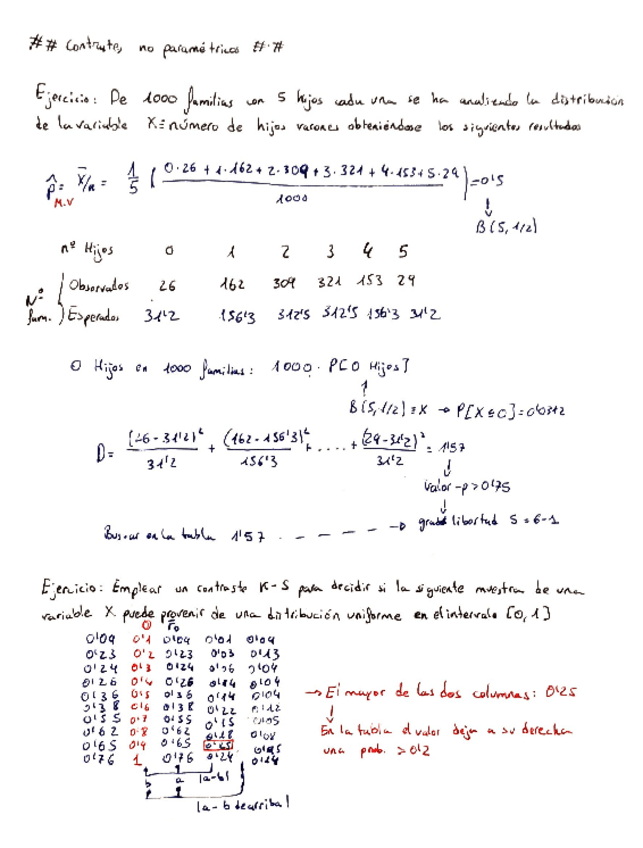 ## Contrastes no paramétricos ##
Ejercicio: De 1000 familias con 5 hijos cada una se ha analizado la distribución
de la variable X≡número de hijos varones obteniéndose los siguientes resultados
p̂ = X̄/n = 1/5 ( (0·26 + 1·162 + 2·309 + 3·321 + 4·153 + 5·29) / 1000 ) = 0'5
M.V
B(5,1/2)
nº Hijos 0 1 2 3 4 5
Nº fam.
Observados 26 162 309 321 153 29
Esperados 31'2 156'3 312'5 312'5 156'3 31'2
0 Hijos en 1000 familias: 1000 · P[0 Hijos]
B(5,1/2) ≡ X → P[X≤0] = 0'0312
D = (26-31'2)²/31'2 + (162-156'3)²/156'3 + .... + (29-31'2)²/31'2 = 1'57
valor-p > 0'75
Buscar en la tabla 1'57 - - - - - → grados libertad 5=6-1
Ejercicio: Emplear un contraste K-S para decidir si la siguiente muestra de una
variable X puede provenir de una distribución uniforme en el intervalo [0,1]
0 F₀
0'09 0'1 0'09 0'01 0'09
0'23 0'2 0'23 0'03 0'13
0'24 0'3 0'24 0'06 0'04
0'26 0'4 0'26 0'14 0'04
0'36 0'5 0'36 0'14 0'04
0'38 0'6 0'38 0'22 0'12
0'55 0'7 0'55 0'15 0'05
0'62 0'8 0'62 0'18 0'08
0'65 0'9 0'65 0'25 0'15
0'76 1 0'76 0'24 0'14
→ El mayor de las dos columnas: 0'25
En la tabla el valor deja a su derecha
una prob. > 0'2
b a |a-b|
|a-b de arriba|